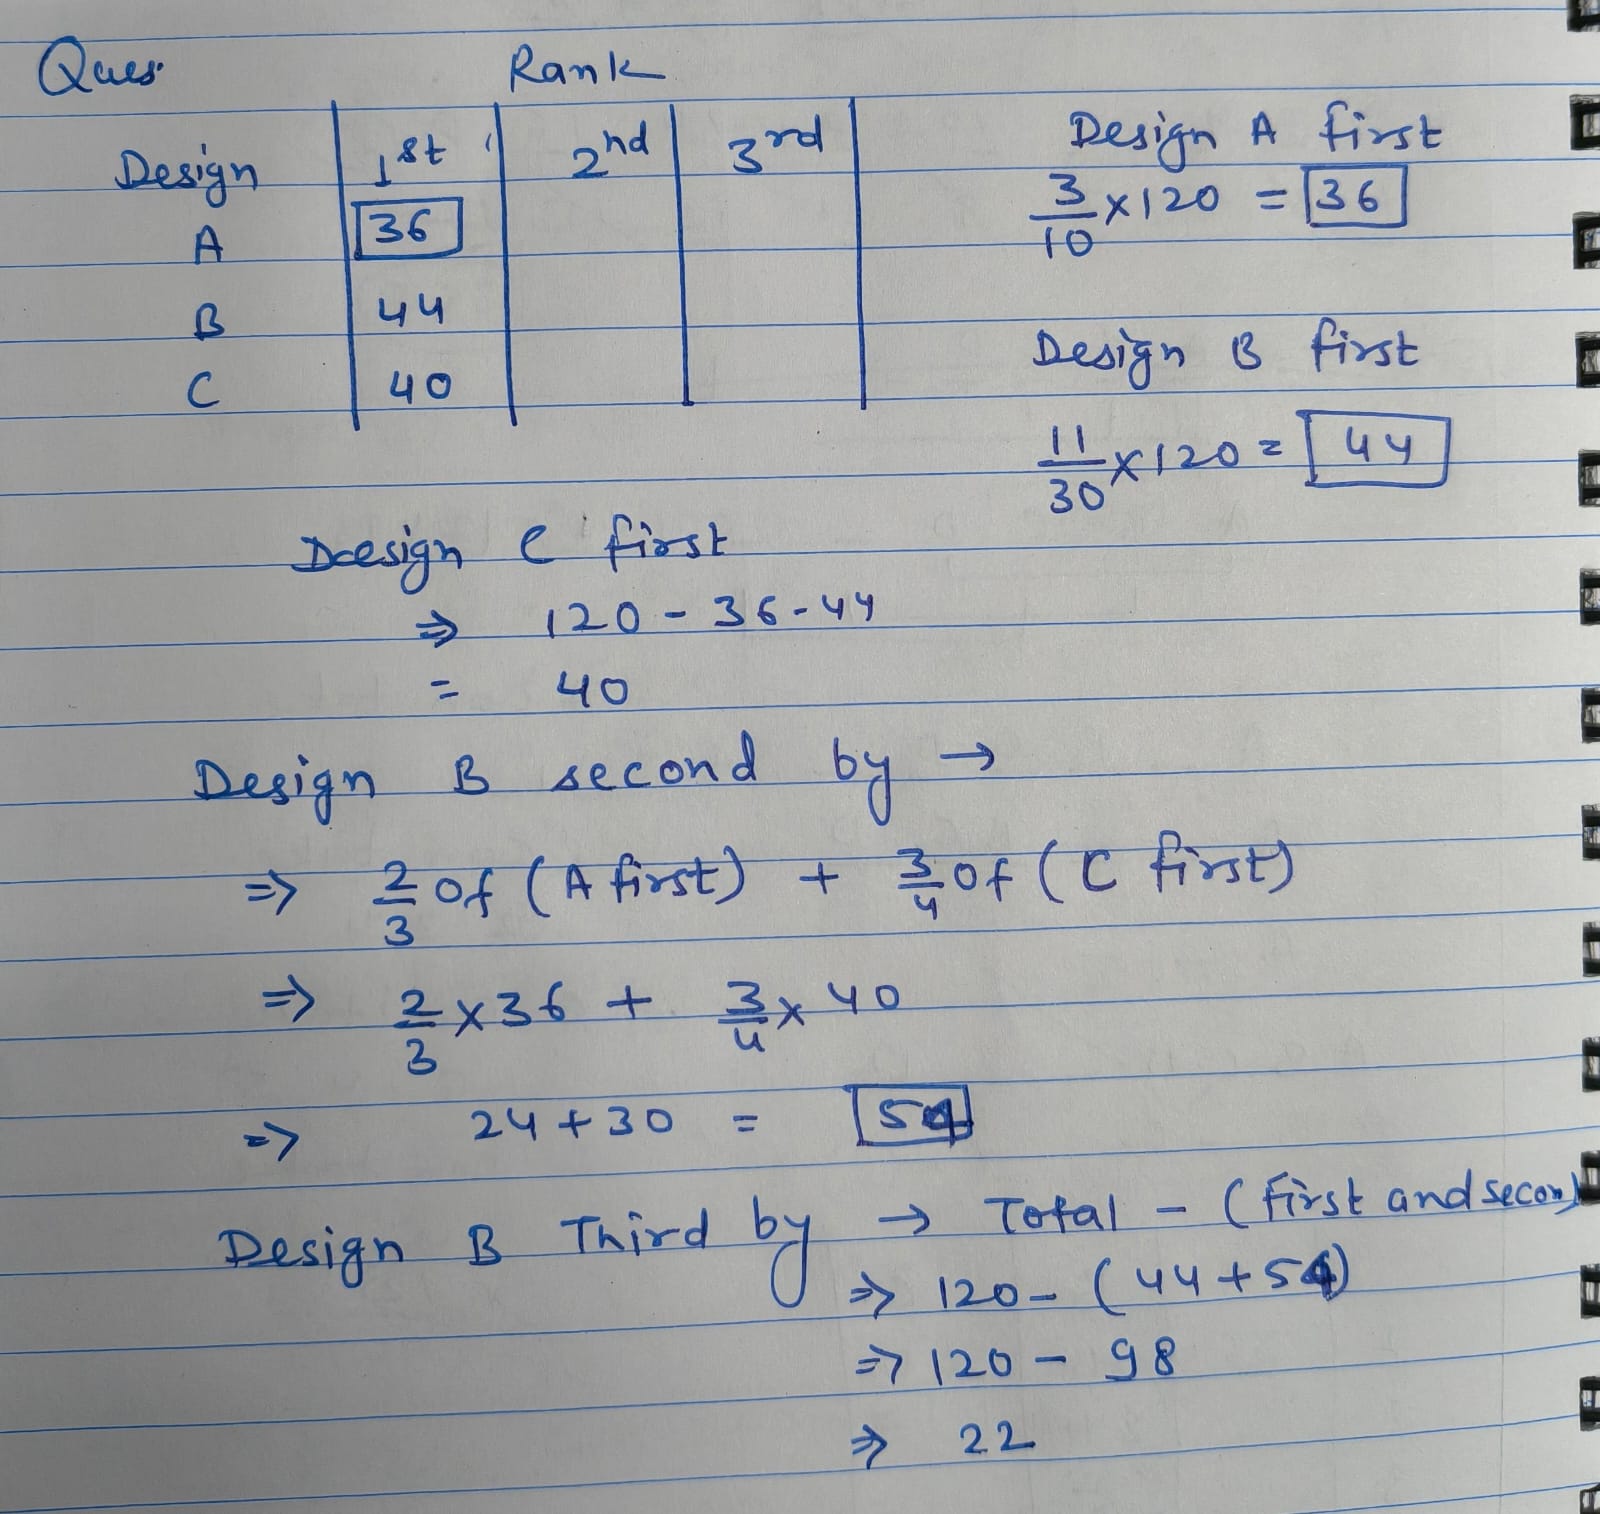 Ques.
Rank
Design 1st 2nd 3rd
A 36
B 44
C 40
Design A first
3/10 × 120 = 36
Design B first
11/30 × 120 = 44
Dcesign C first
⇒ 120 - 36 - 44
= 40
Design B second by →
⇒ 2/3 of (A first) + 3/4 of (C first)
⇒ 2/3 × 36 + 3/4 × 40
⇒ 24 + 30 = 54
Design B Third by → Total - (first and second
⇒ 120 - (44 + 54)
⇒ 120 - 98
⇒ 22